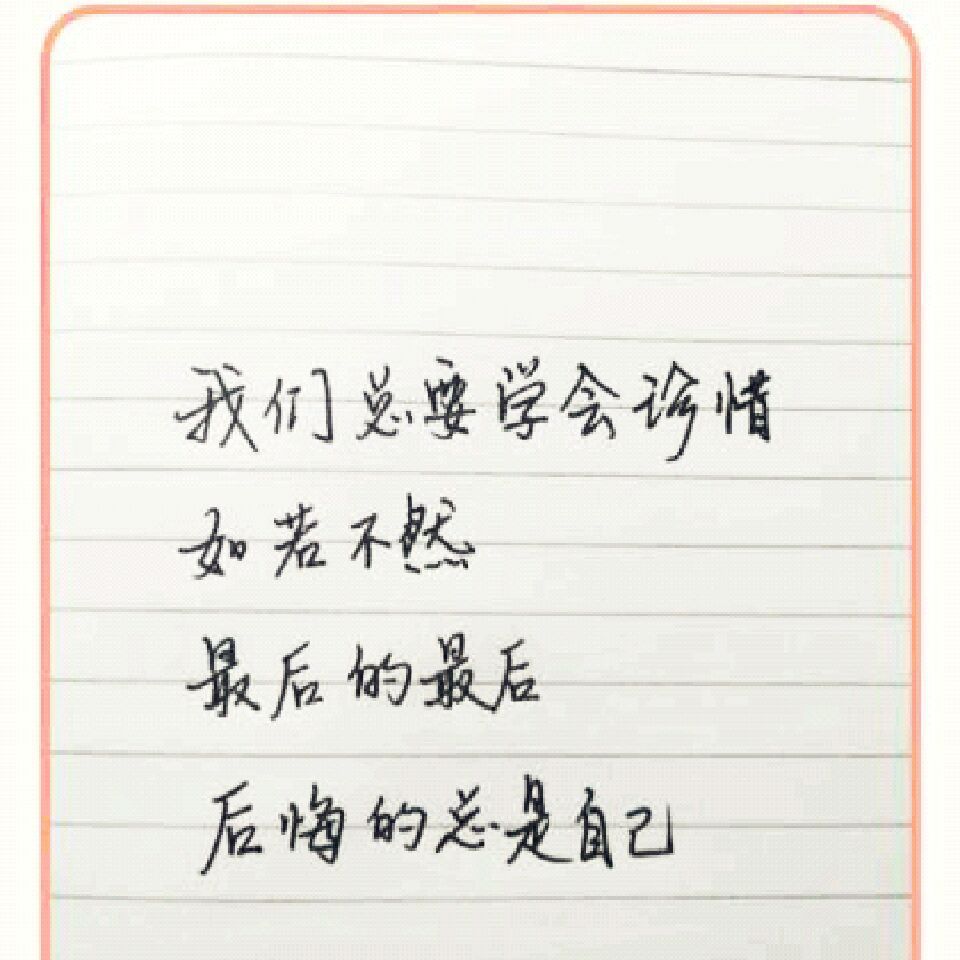 我们总要学会诊惜
如若不然
最后的最后
后悔的总是自己